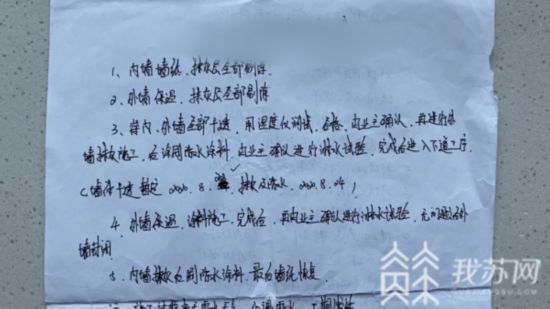 1、内墙墙纸、抹灰层全部剔除
2、外墙保温、抹灰层全部剔除
3、等内、外墙全部干透,用湿度仪测试,合格,由业主确认,再进行外
墙抹灰施工,在涂刷防水涂料,由业主确认进行淋水试验,完成后进入下道工序
(墙体干透暂定2020.8. 抹灰及防水,2020.8.04)
4、外墙保温、涂料施工完成后,再由业主确认进行淋水试验,
墙封闭
5、内墙抹灰在刷防水涂料,最后墙纸恢复
我苏网